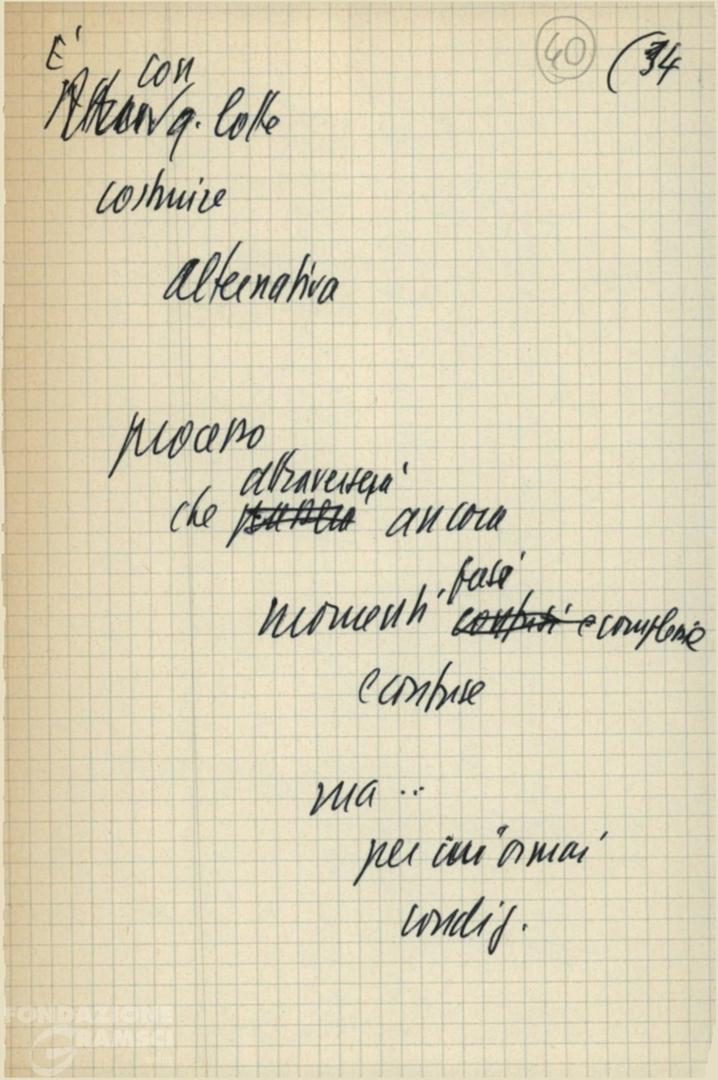 40 (34
E' con
q. lotte
costruire
alternativa
processo
attraverserà
che ancora
fasi
momenti confusi e complessi
e confuse
ma ..
per cui ormai
condiz.
FONDAZIONE
GRAMSCI